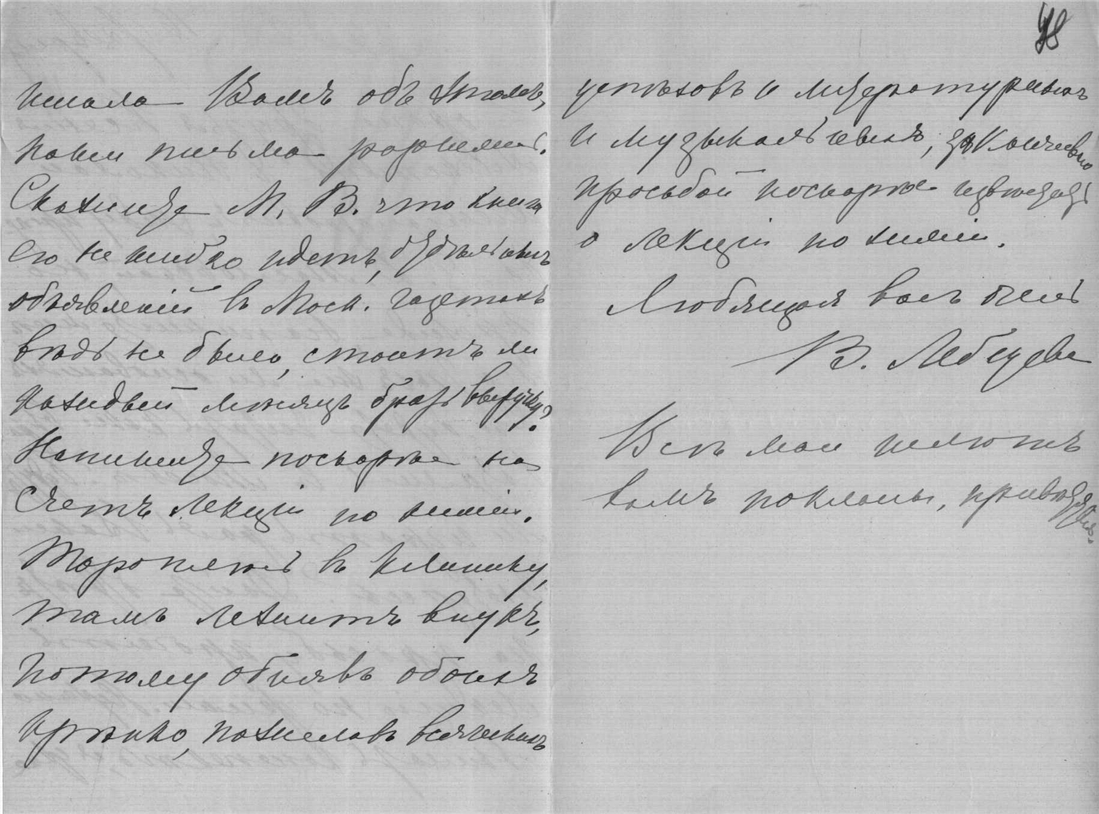 писала Вамъ объ этомъ,
наши письма
Скажите М. В. что книга
его не шибко идетъ,
объявленій въ Моск. газетахъ
вѣдь не было, стоитъ ли
каждый мѣсяцъ брать выручку?
Напишите поскорѣе на
счетъ лекціи по химіи.
Тороплюсь въ клинику,
тамъ лежитъ внукъ,
потому обнявъ обоихъ
крѣпко, пожелавъ всяческихъ
48
успѣховъ и литературныхъ
и музыкальныхъ, заканчиваю
просьбой поскорѣе извѣстить
о лекціи по химіи.
Любящая васъ
В. Лебедева
Всѣ мои шлютъ
вамъ поклоны,